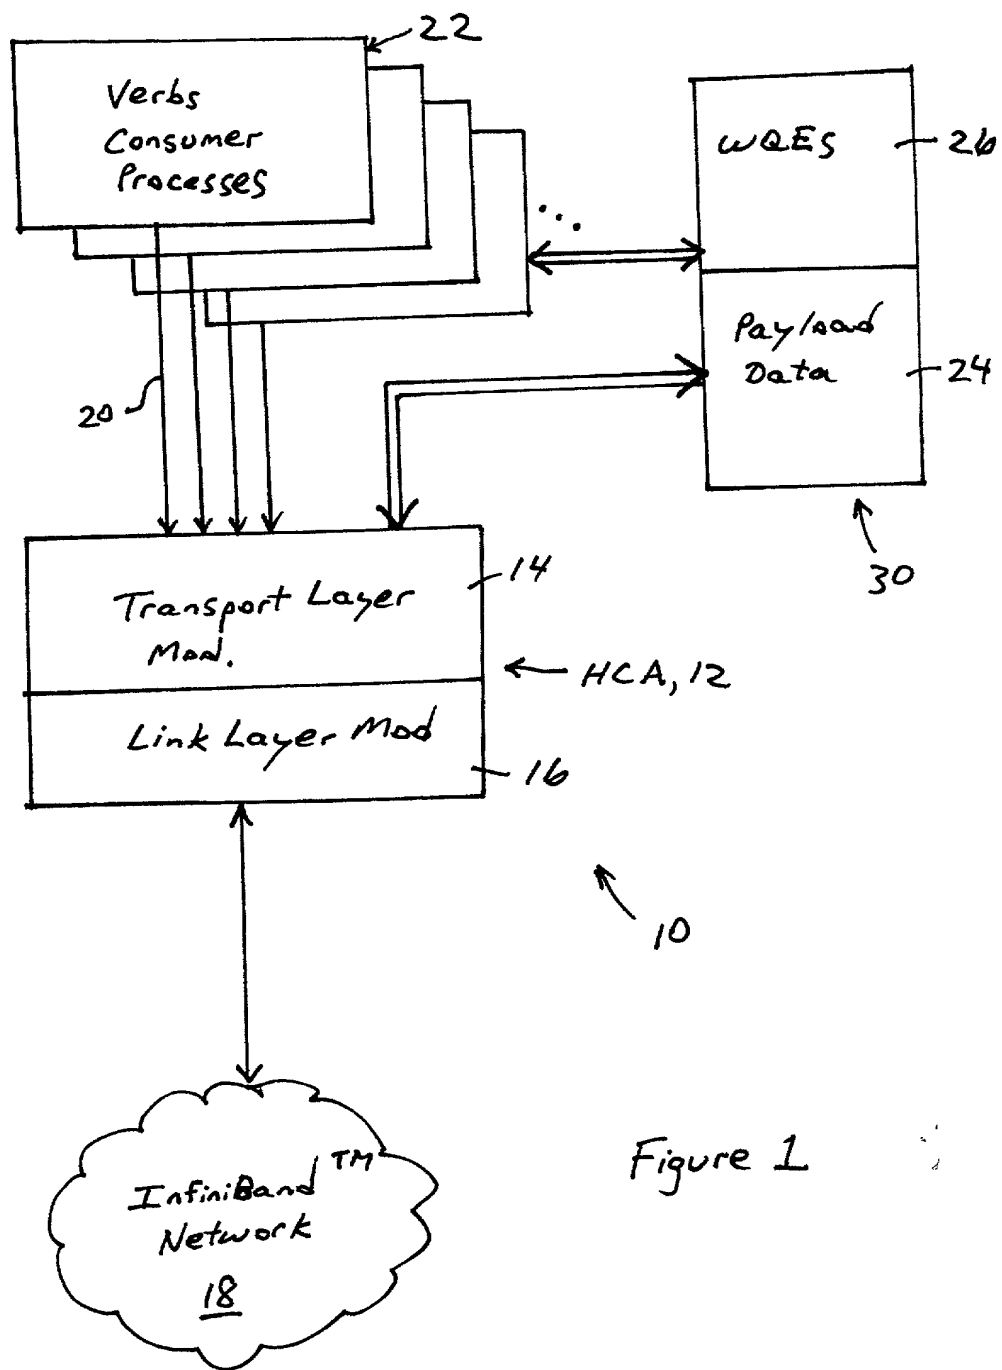 22
Verbs
Consumer
Processes
WQEs
26
Payload
Data
24
20
30
14
Transport Layer
Mod.
HCA, 12
Link Layer Mod
16
10
InfiniBand™
Network
18
Figure 1